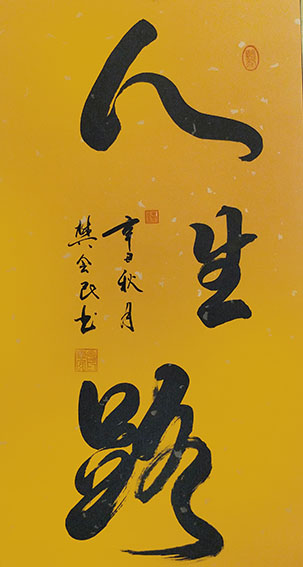 人生路
辛丑秋月
樊金民书